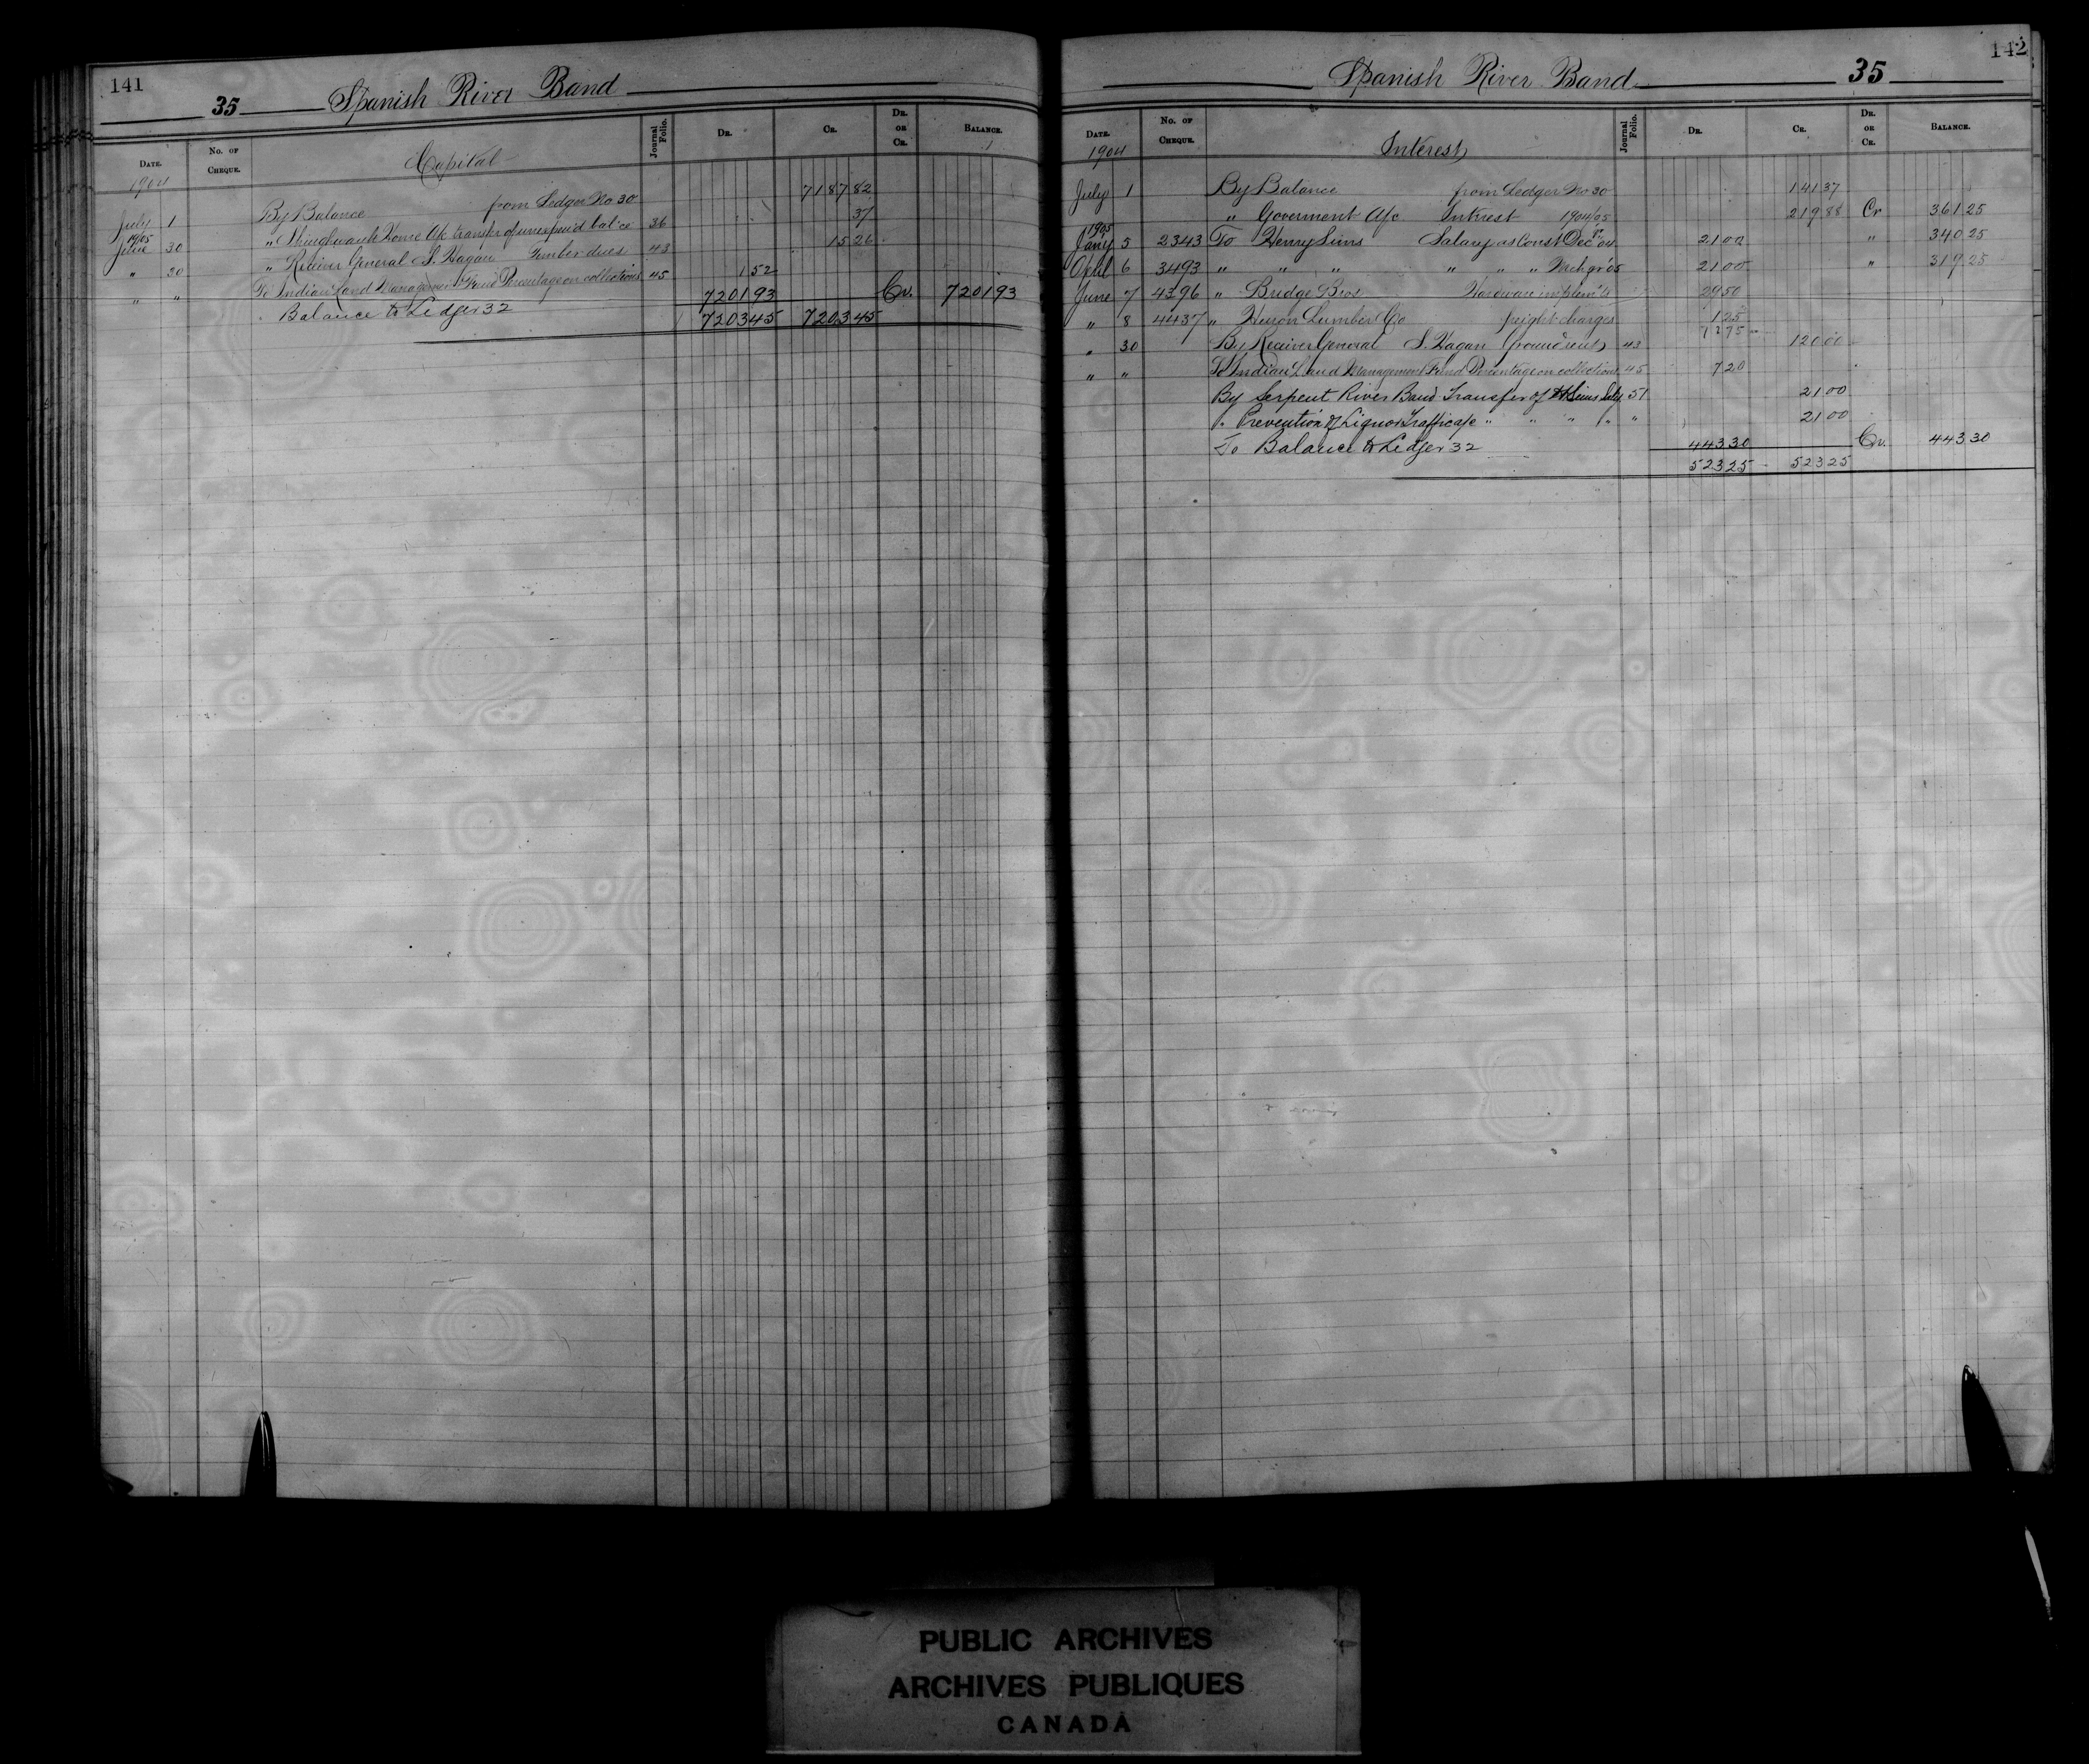 141
35 Spanish River Band
DATE. No. OF CHEQUE. Capital Journal Folio. DR. CR. DR. OR CR. BALANCE.
1904
July 1 By Balance from Ledger No 30 7187 82
" Shingwauk Home A/c transfer of unexpend bal'ce 36 37
1905
June 30 " Receiver General S. Hagan Timber dues 43 15 26
" 30 To Indian Land Management Fund Percentage on collections 45 1 52
" " Balance to Ledger 32 7201 93 Cr. 7201 93
7203 45 7203 45
142
Spanish River Band 35
DATE. No. OF CHEQUE. Interest Journal Folio. DR. CR. DR. OR CR. BALANCE.
1904
July 1 By Balance from Ledger No 30 141 37
" Goverment A/c Interest 1904/05 219 88 Cr 361 25
1905
Jany 5 2343 To Henry Sims Salary as Const Dec qr '04 21 00 " 340 25
April 6 3493 " " " " " " Mch qr '05 21 00 " 319 25
June 7 4396 " Bridge Bros Hardware implem'ts 29 50
" 8 4437 " Huron Lumber Co freight charges 1 25
" 30 By Receiver General S. Hagan Ground rents 43 120 00
" " To Indian Land Management Fund Percentage on collections 45 7 20
By Serpent River Band Transfer of H Sims Saly 51 21 00
" Prevention of Liquor Traffic a/c " " " " " 21 00
To Balance to Ledger 32 443 30 Cr. 443 30
523 25 523 25
PUBLIC ARCHIVES
ARCHIVES PUBLIQUES
CANADA